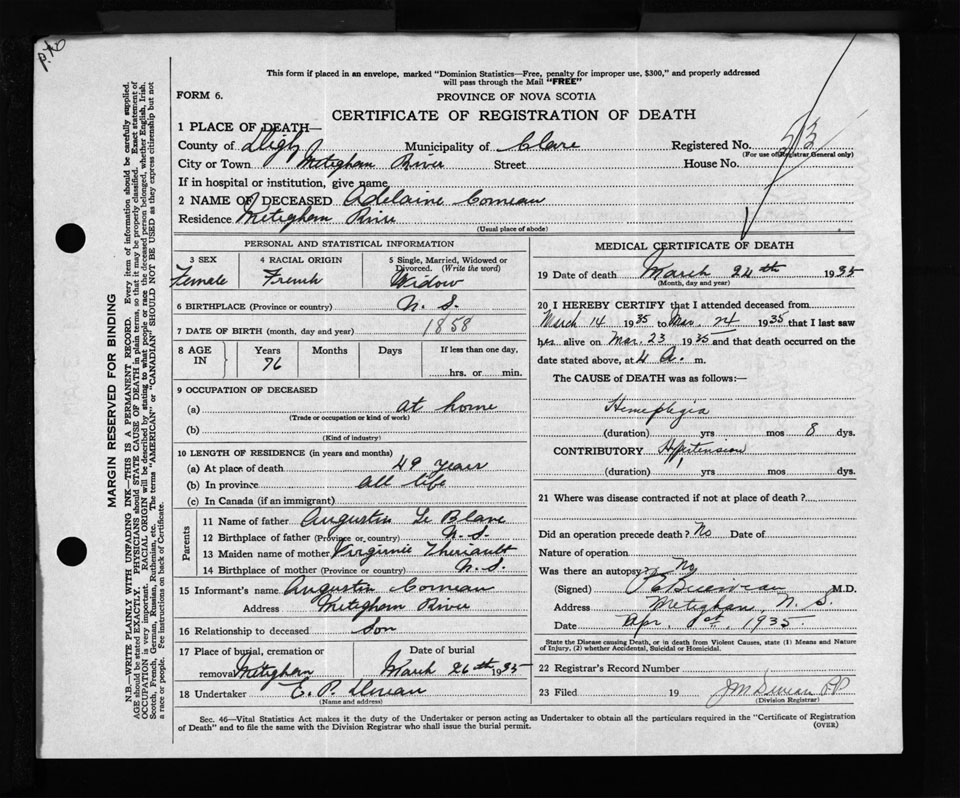 P.T.O
This form if placed in an envelope, marked "Dominion Statistics—Free, penalty for improper use, $300," and properly addressed
will pass through the Mail "FREE"
FORM 6.
PROVINCE OF NOVA SCOTIA
CERTIFICATE OF REGISTRATION OF DEATH
1 PLACE OF DEATH—
County of Digby Municipality of Clare Registered No.
(For use of Registrar General only)
City or Town Meteghan River Street House No.
If in hospital or institution, give name
2 NAME OF DECEASED Adelaine Comeau
Residence Meteghan River
(Usual place of abode)
PERSONAL AND STATISTICAL INFORMATION
3 SEX 4 RACIAL ORIGIN 5 Single, Married, Widowed or
Divorced. (Write the word)
Female French Widow
6 BIRTHPLACE (Province or country) N. S.
7 DATE OF BIRTH (month, day and year) 1858
8 AGE IN Years Months Days If less than one day,
76 hrs. or min.
9 OCCUPATION OF DECEASED
(a) at home
(Trade or occupation or kind of work)
(b)
(Kind of industry)
10 LENGTH OF RESIDENCE (in years and months)
(a) At place of death 49 years
(b) In province all life
(c) In Canada (if an immigrant)
Parents
11 Name of father Augustin Le Blanc
12 Birthplace of father (Province or country) N. S.
13 Maiden name of mother Virginie Theriault
14 Birthplace of mother (Province or country) N. S.
15 Informant's name Augustin Comeau
Address Meteghan River
16 Relationship to deceased Son
17 Place of burial, cremation or Date of burial
removal Meteghan March 26th 1935
18 Undertaker E. P.
(Name and address)
MEDICAL CERTIFICATE OF DEATH
19 Date of death March 24th 1935
(Month, day and year)
20 I HEREBY CERTIFY that I attended deceased from
March 14 1935 to Mar. 24 1935 that I last saw
her alive on Mar. 23 1935 and that death occurred on the
date stated above, at 4 A. m.
The CAUSE of DEATH was as follows:—
Hemiplegia
(duration) yrs mos 8 dys.
CONTRIBUTORY Hypertension
(duration) yrs mos dys.
21 Where was disease contracted if not at place of death?
Did an operation precede death? No Date of
Nature of operation
Was there an autopsy? No
(Signed) M.D.
Address Meteghan, N. S.
Date Apr. 1st, 1935.
State the Disease causing Death, or in death from Violent Causes, state (1) Means and Nature
of Injury, (2) whether Accidental, Suicidal or Homicidal.
22 Registrar's Record Number
23 Filed 19
(Division Registrar)
Sec. 46—Vital Statistics Act makes it the duty of the Undertaker or person acting as Undertaker to obtain all the particulars required in the "Certificate of Registration
of Death" and to file the same with the Division Registrar who shall issue the burial permit.
(OVER)
MARGIN RESERVED FOR BINDING
N.B.—WRITE PLAINLY WITH UNFADING INK—THIS IS A PERMANENT RECORD. Every item of information should be carefully supplied.
AGE should be stated EXACTLY. PHYSICIANS should STATE CAUSE OF DEATH in plain terms, so that it may be properly classified. Exact statement of
OCCUPATION is very important. RACIAL ORIGIN will be described by stating to what people or race the deceased person belonged, whether English, Irish,
Scotch, French, German, Russian, Ruthenian, etc. The terms "AMERICAN" or "CANADIAN" SHOULD NOT BE USED as they express citizenship but not
a race or people. Fee instructions on back of Certificate.